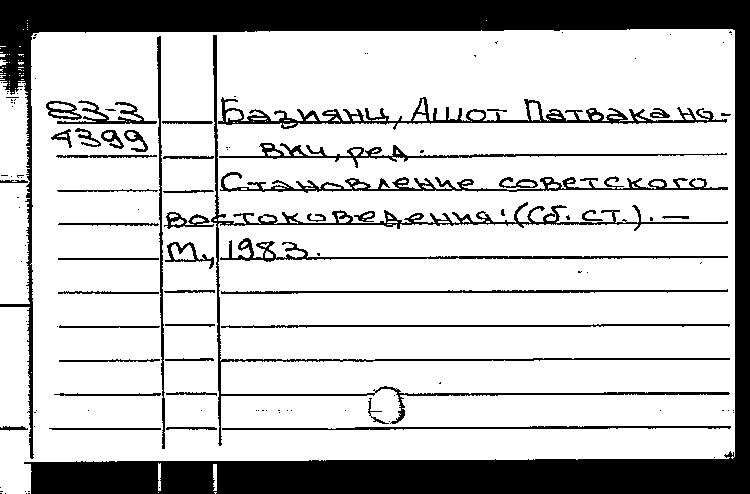 83-3
4399
Базиянц, Ашот Патвакано-
вич, ред.
Становление советского
востоковедения: (Сб. ст.). —
М., 1983.